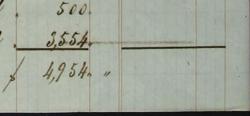 500.
3,554.
4,954. "